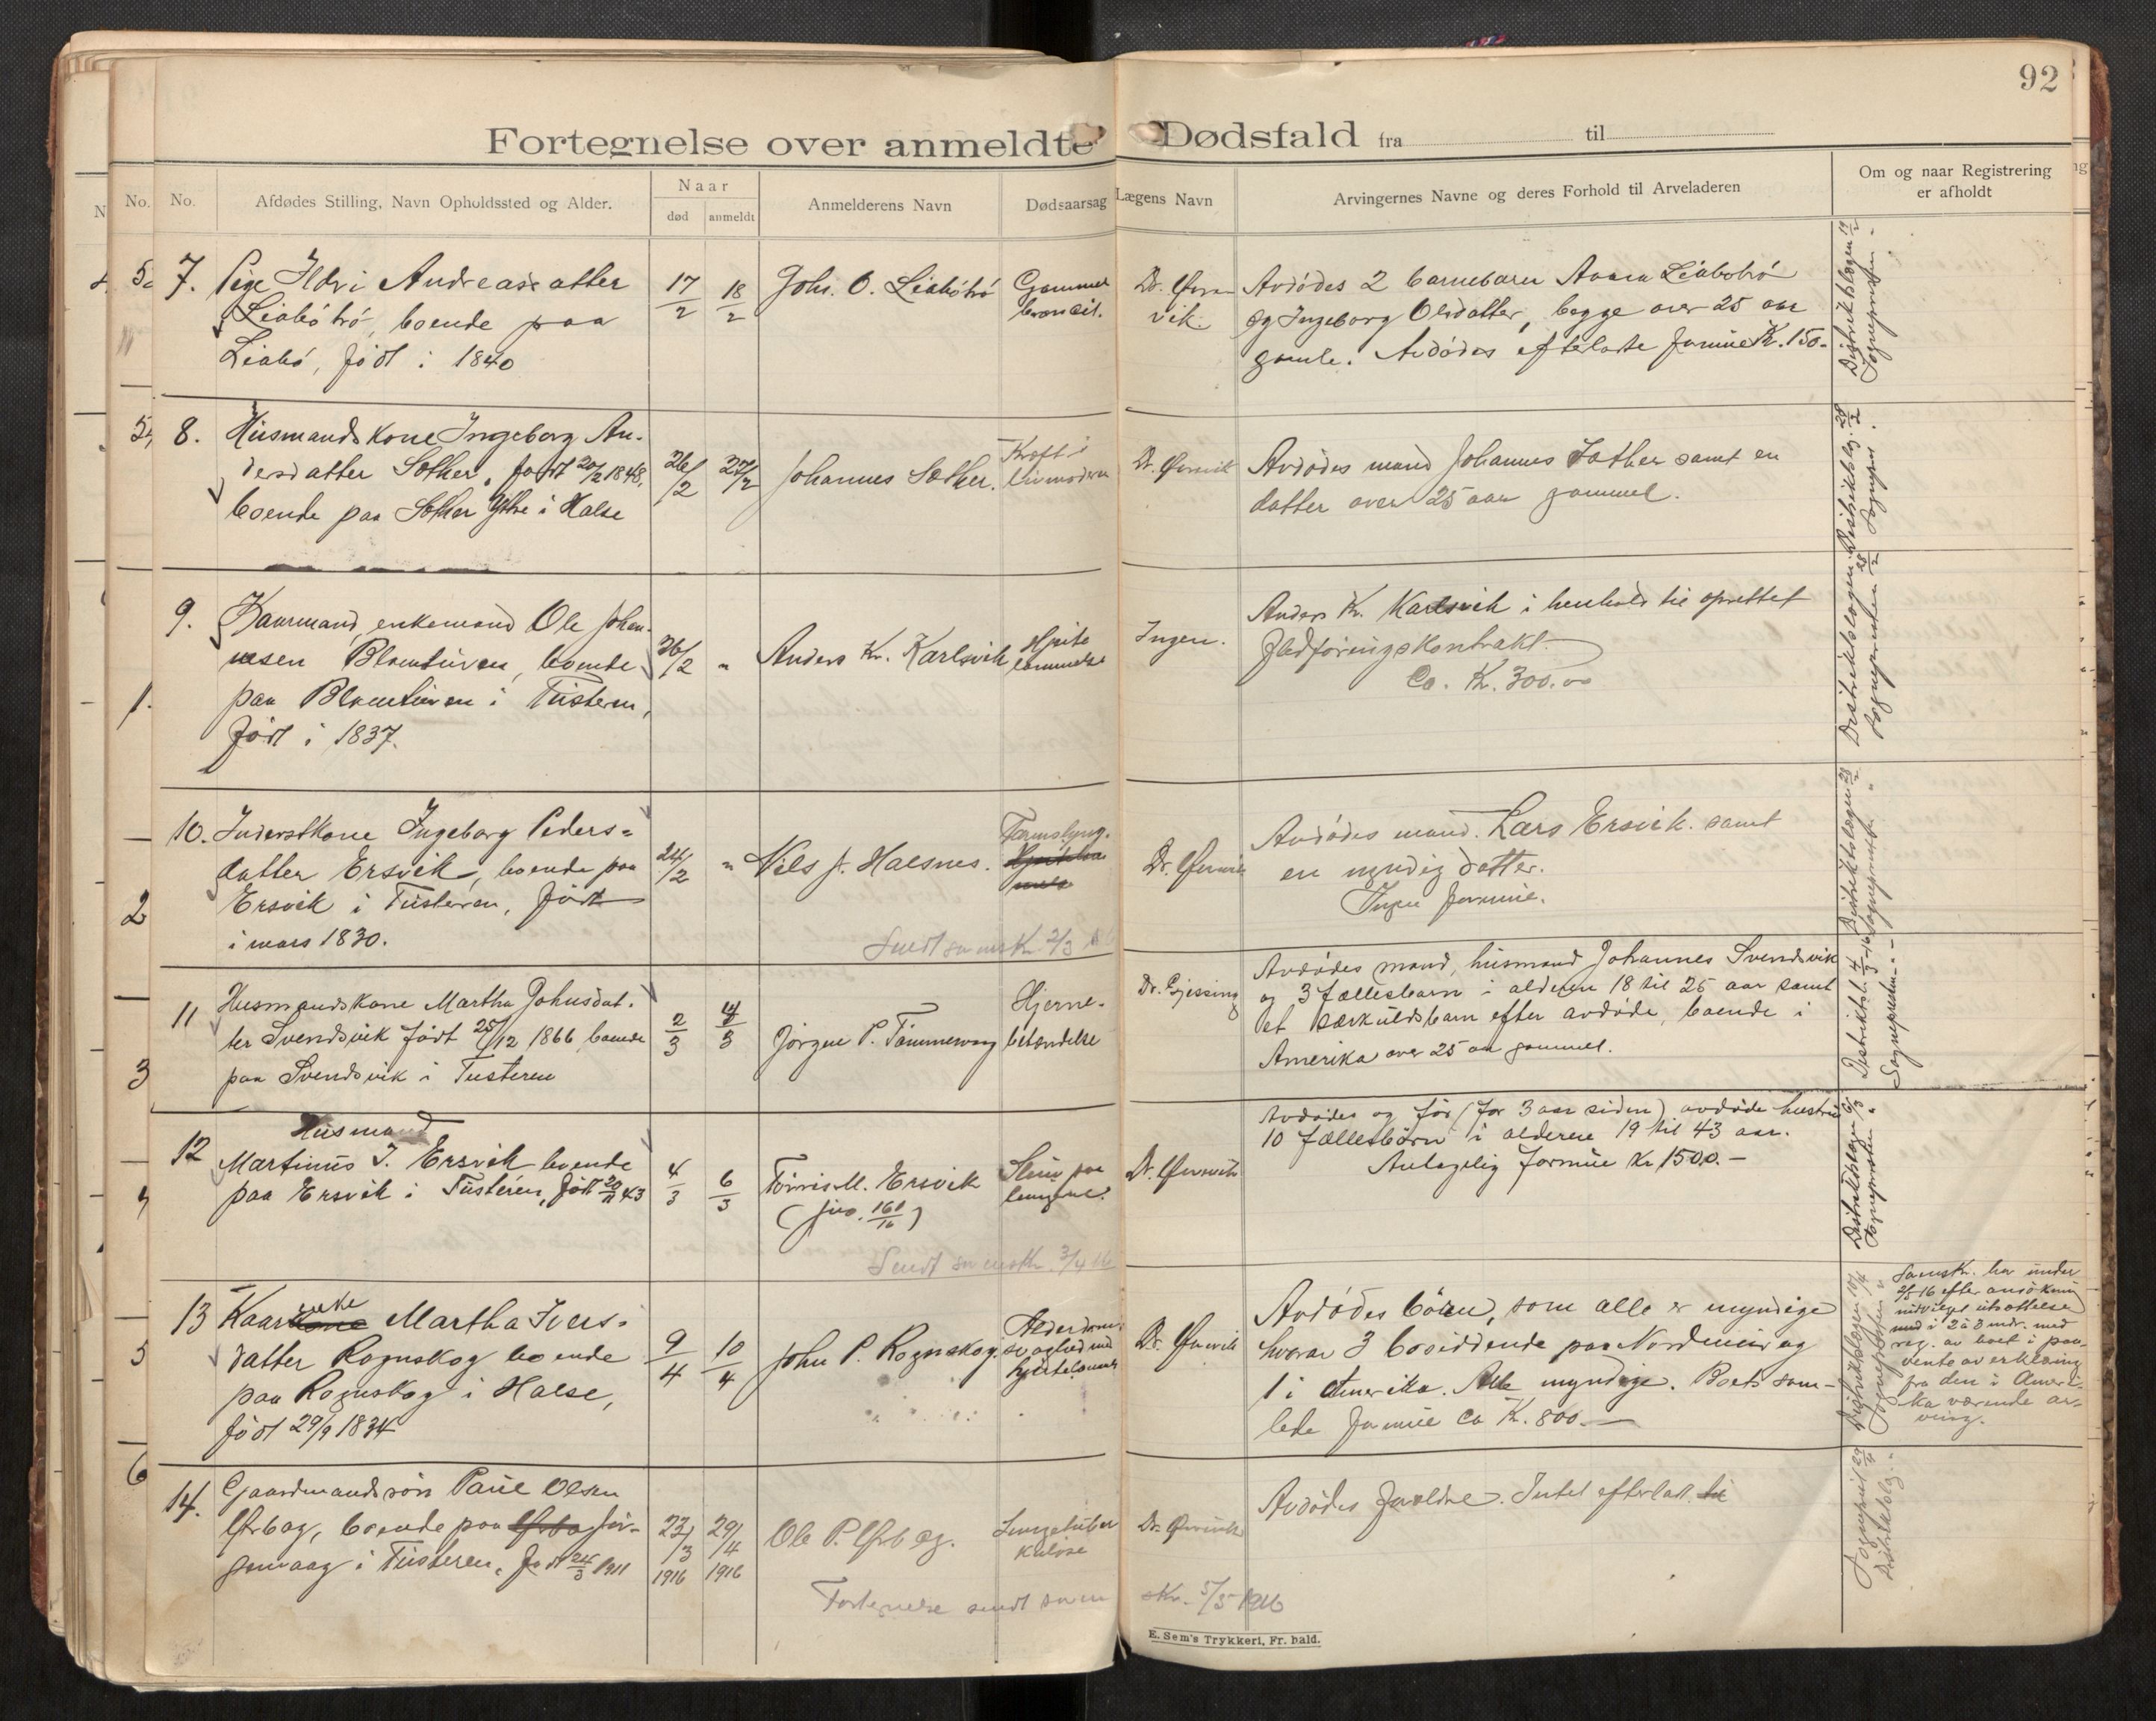 92
Fortegnelse over anmeldte Dødsfald fra til
No. Afdødes Stilling, Navn Opholdssted og Alder. Naar død anmeldt Anmelderens Navn Dødsaarsag Lægens Navn Arvingernes Navne og deres Forhold til Arveladeren Om og naar Registrering er afholdt
7. Pige Ildri Andreasdatter
Liabötrö, boende paa
Liabö, född i 1840
17/2 18/2
Johs. O. Liabötrö
Gammel
broncit.
Dr. Øvre-
vik.
Avdødes 2 barnebarn Liabötrö
og Ingeborg Olsdatter, begge over 25 aar
gamle. Avdødes efterladte formue Kr. 150.-
Distriktslægen 17/2
Sognepresten -
8. Husmandskone Ingeborg An-
dersdatter Sæther, født 20/2 1848,
boende paa Sæther Ytre i Halse
26/2 27/2
Johannes Sæther.
Kræft i
livmoderen
Dr. Ørsvik
Avdødes mand Johannes Sæther samt en
datter over 25 aar gammel.
Distriktslæg. 28/2
Sognepr. "
9. Kaarmand, enkemand Ole Johan-
nesen boende
paa i Tusteren,
født i 1837.
26/2 "
Anders Kr. Karlsvik
Hjerte
lammelse
Ingen.
Anders Kr. Karlsvik i henhold til oprettet
Fledföringskontrakt.
Ca. Kr. 300.00
Distriktslægen 28/2
Sognepresten
10. Inderstkone Ingeborg Peders-
datter Ersvik, boende paa
Ersvik i Tusteren, født
i mars 1830.
24/2 "
Nils J. Halsnes.
Tarmslyng.
Avdødes mand Lars Ersvik samt
en myndig datter.
Ingen formue.
Distriktslægen 28/2
Sogneprest "
Sendt sorensk. 2/3 16
11 Husmandskone Martha Johnsdat-
ter Svendsvik født 25/12 1866 boende
paa Svendsvik i Tusteren
2/3 4/3
Jørgen P. Tömmervaag
Hjerne-
betændelse
Dr. Gjessing
Avdødes mand, husmand Johannes Svendsvik
og 3 fællesbarn i alderen 18 til 25 aar samt
et særkuldsbarn efter avdøde, boende i
Amerika over 25 aar gammel.
Distriktsl. 4/3-16
Sognepresten - " -
12 Husmand
Martinus J. Ersvik boende
paa Ersvik i Tusteren, født 20/11 43
4/3 6/3
M. Ersvik
(jno. 161/16)
Slim paa
lungene.
Avdødes og før (for 3 aar siden) avdøde hustru
10 fællesbørn i alderen 19 til 43 aar.
Antagelig formue Kr 1500.-
Distriktslægen 6/3
Sognepresten "
Sendt sorenskr. 3/4 16
13 Kaarkone enke Martha Ivers-
datter Rognskog boende
paa Rognskog i Halse,
født 29/9 1834
9/4 10/4
John P. Rognskog.
Alderdoms-
svaghed med
hjertelammelse
Avdødes børn, som alle er myndige
hvorav 3 bosiddende paa Nordmør og
1 i Amerika. Alle myndige. Boets sam-
lede formue ca Kr. 800.-
Distriktslægen 10/4
Sognepresten "
Sorenskr. har under
2/5 16 efter ansökning
indvilget utsættelse
med i 2 à 3 mdr. med
reg. av boet i paa-
vente av erklæring
fra den i Ameri-
ka værende ar-
ving.
14. Gaardmandssøn Paul Olsen
boende paa
i Tusteren, født 24/3 1911
23/3 1916 29/4 1916
Ole P.
Lungetuber
kulose
Avdødes foreldre. Intet efterlatt.
Sogneprest 29/4
Distriktslæg. "
Fortegnelse sendt soren
skr. 5/5 1916
E. Sem's Trykkeri, Fr. hald.
No.
1.
2
3
4
5
6